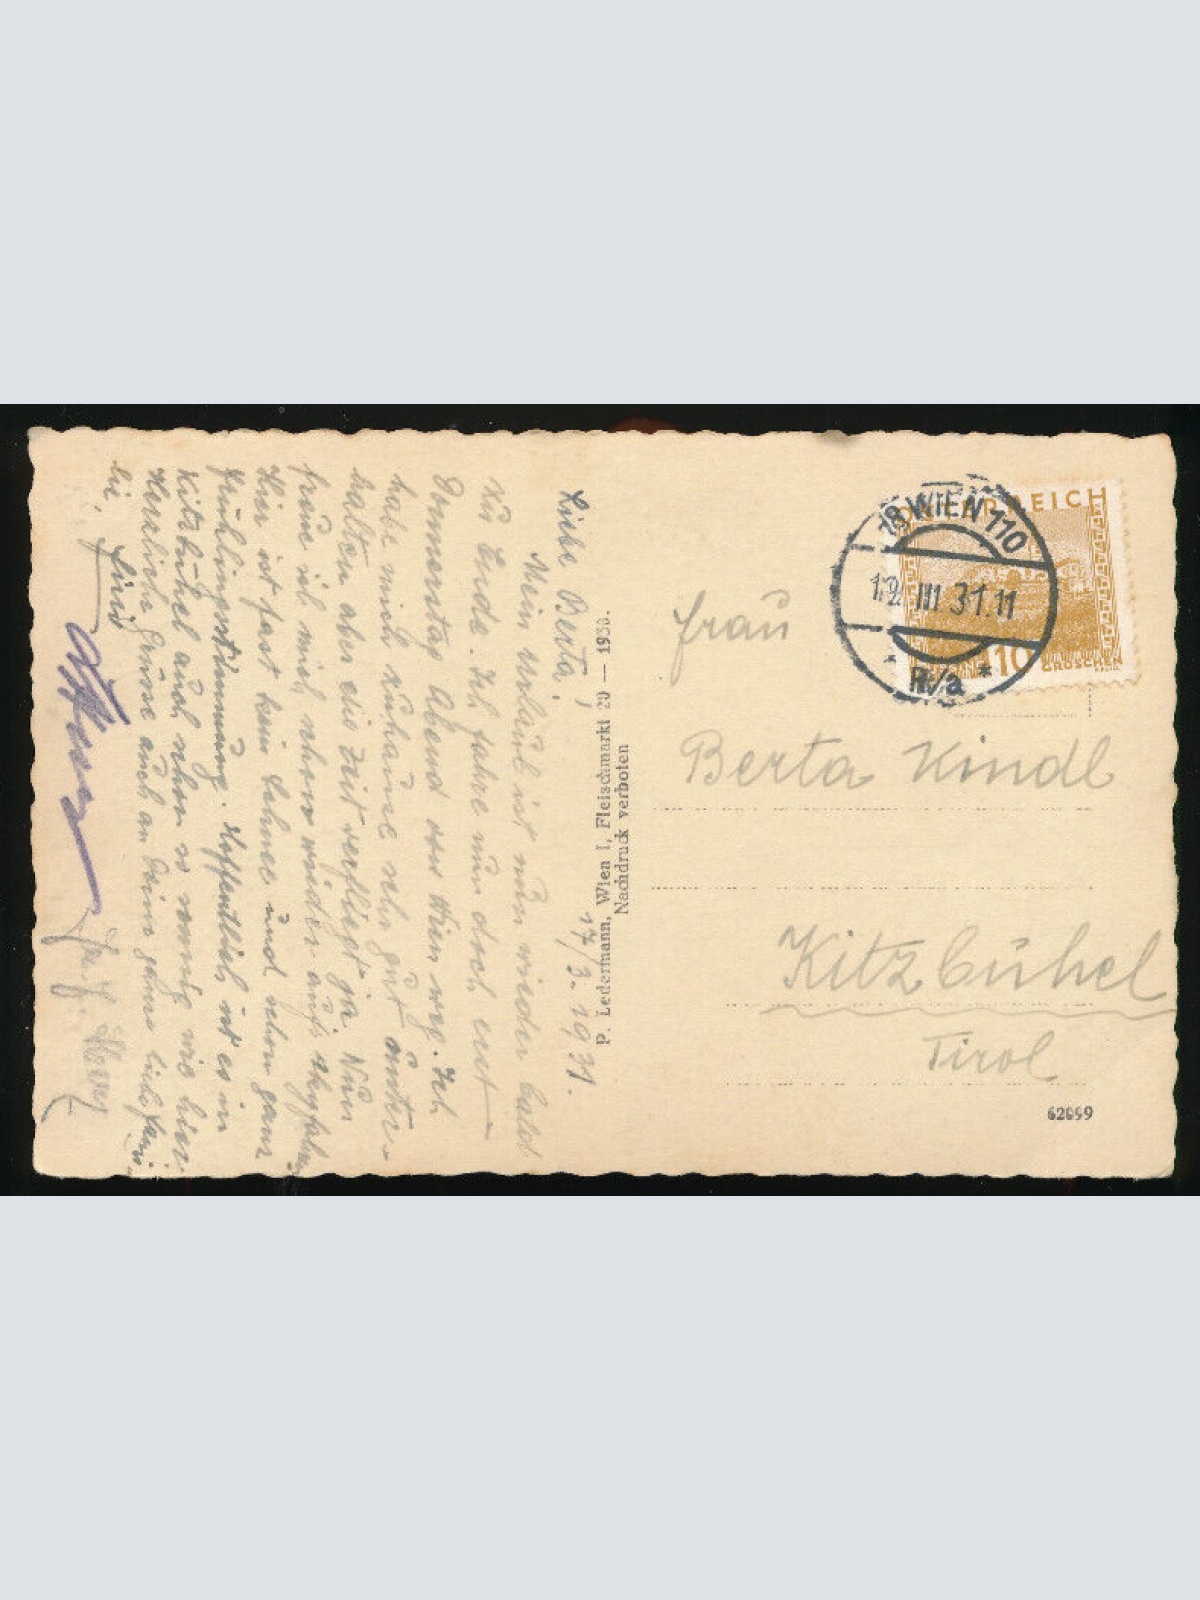 17/3. 1931.
Liebe Berta!
Mein Urlaub ist nun wieder bald
zu Ende. Ich fahre nun doch erst
Donnerstag Abend von Wien weg. Ich
habe mich zuhause sehr gut unter-
halten aber die Zeit verfliegt ja. Nun
freue ich mich schon wieder aufs
Hier ist fast kein Schnee und schon ganz
Frühlingsstimmung. Hoffentlich ist es in
Kitzbühel auch schon so sonnig wie hier
Herzliche Grüsse auch an Deine ganze liebe Fami-
lie,
P. Ledermann, Wien I, Fleischmarkt 20 — 1930.
Nachdruck verboten
ÖSTERREICH
10
GROSCHEN
18 WIEN 110
III 31.11
*
Frau
Berta Kindl
Kitzbühel
Tirol
62699